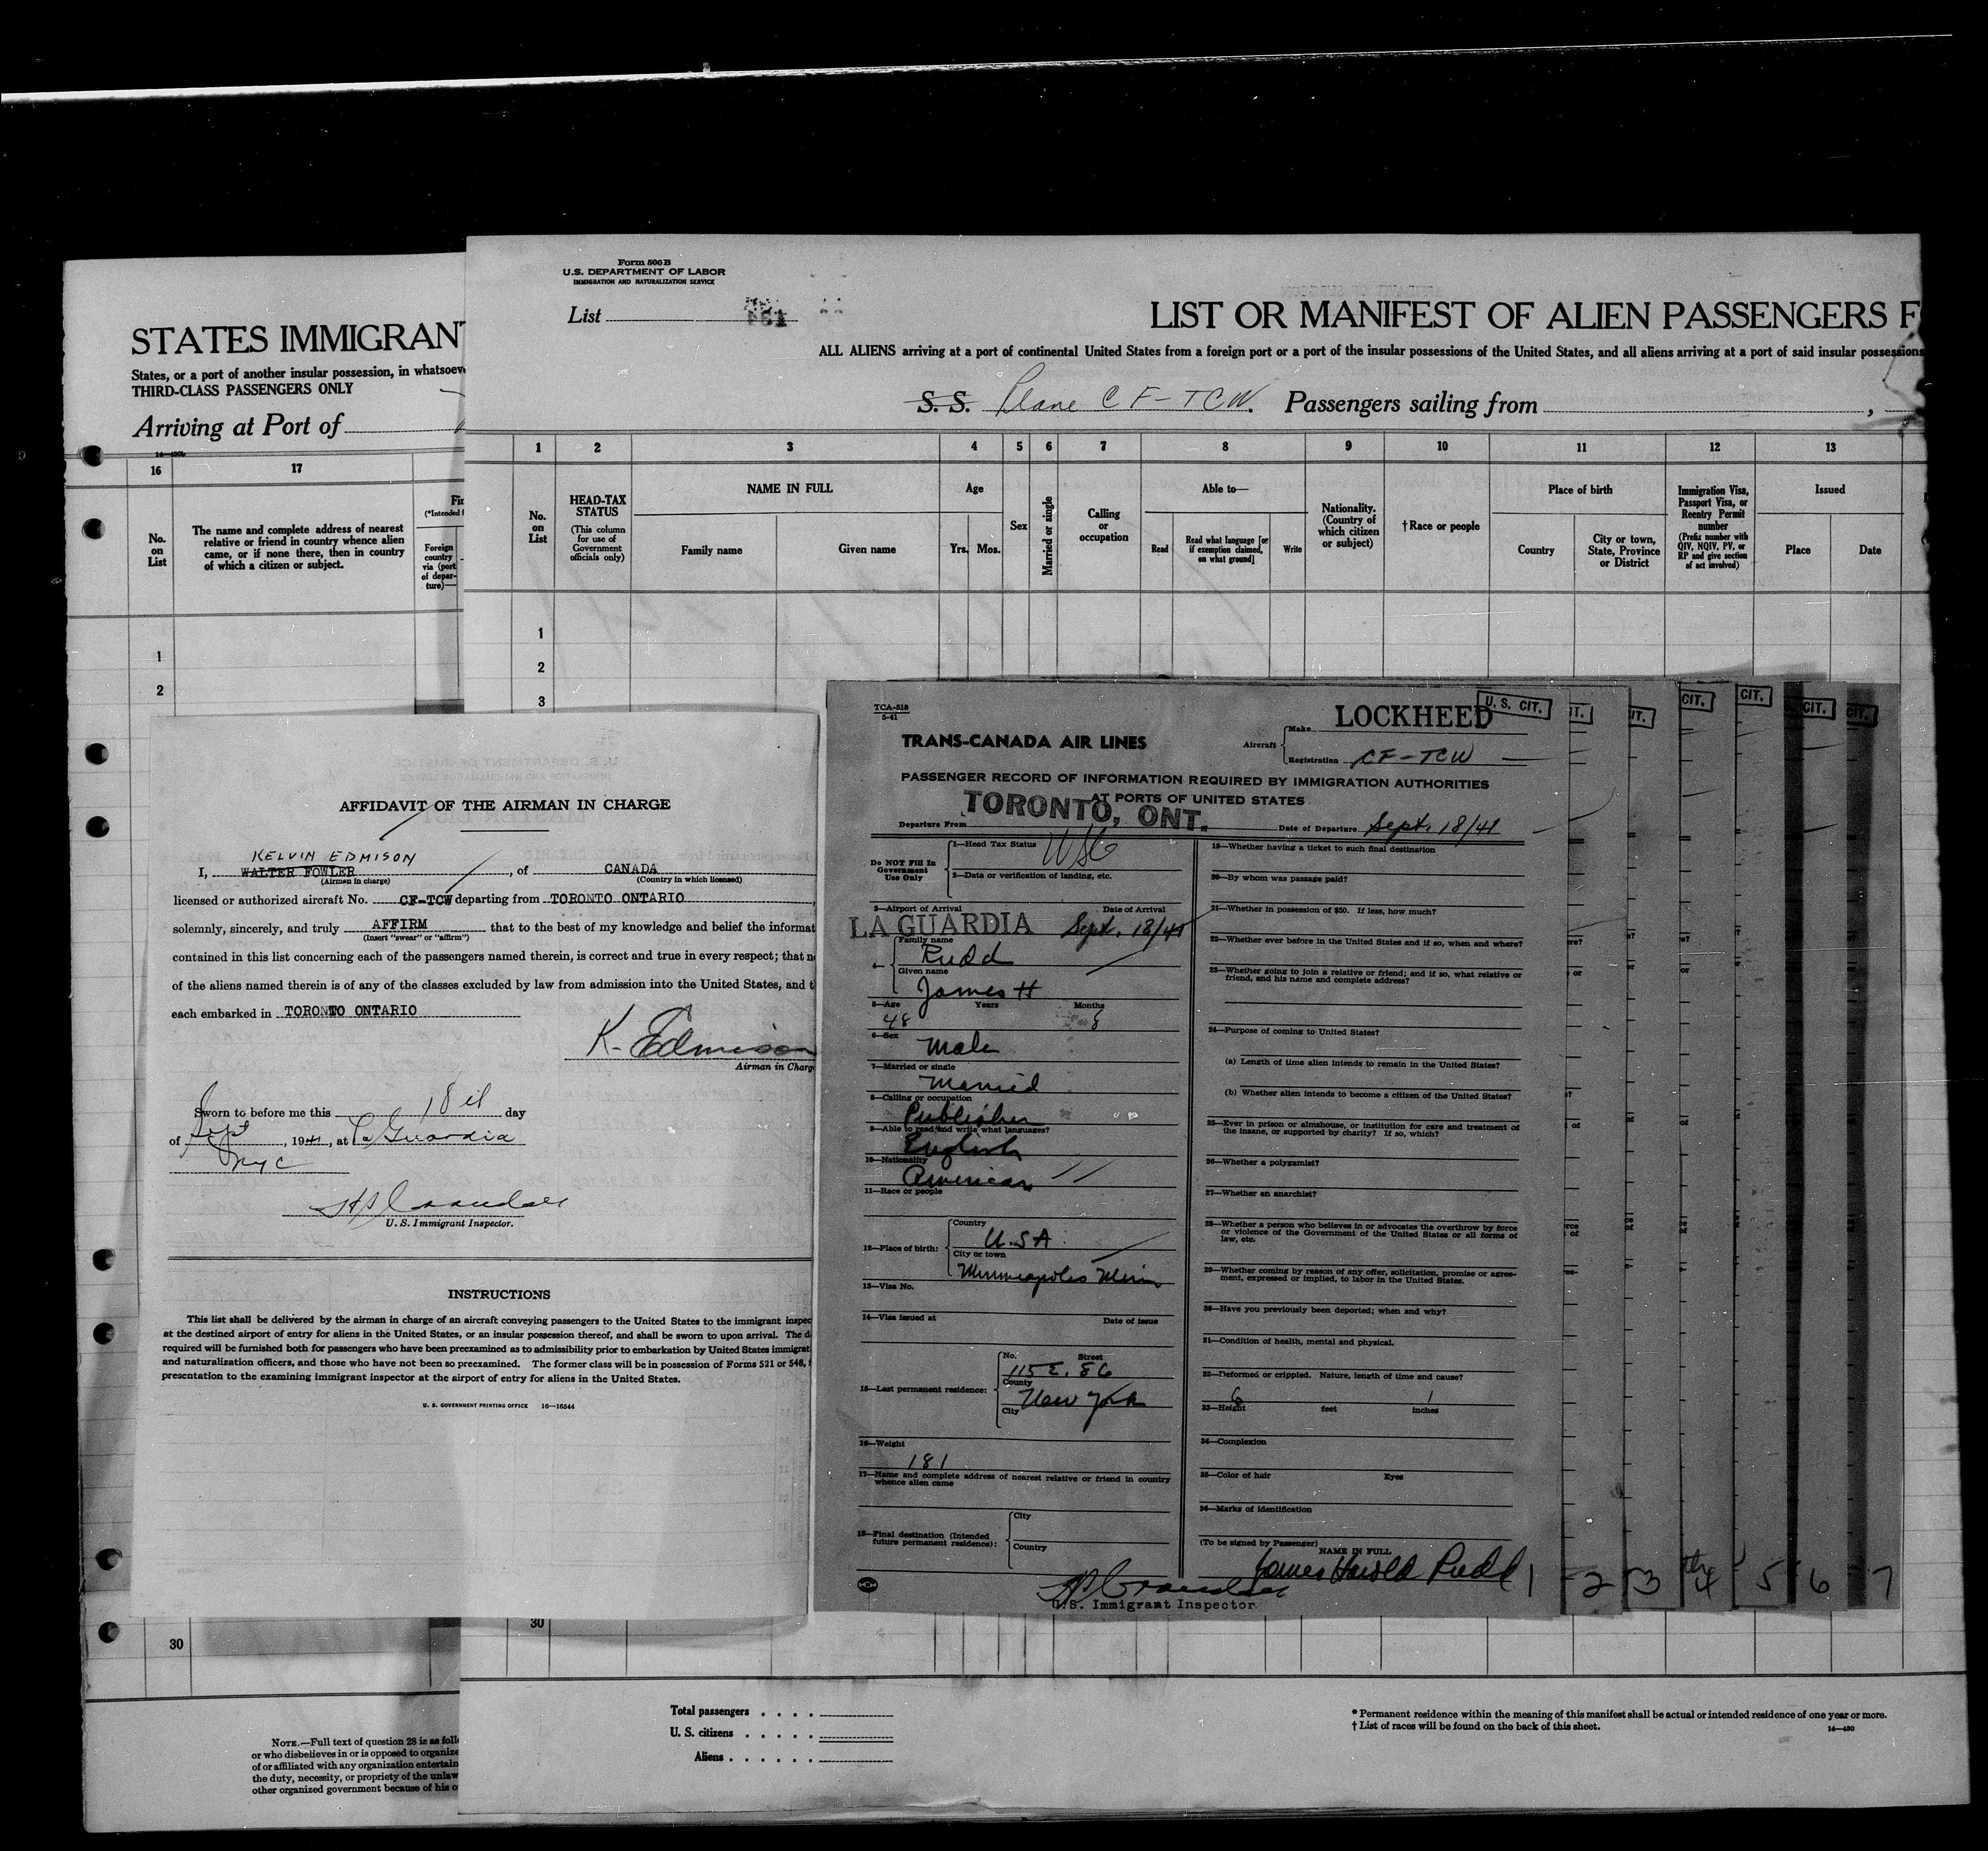 STATES IMMIGRANT
States, or a port of another insular possession, in whatsoev
THIRD-CLASS PASSENGERS ONLY
Arriving at Port of
16 17
No. on List
The name and complete address of nearest
relative or friend in country whence alien
came, or if none there, then in country
of which a citizen or subject.
(*Intended
Foreign
country
via (port
of depar-
ture)—
1
2
30
NOTE.—Full text of question 28 is as foll
or who disbelieves in or is opposed to organize
of or affiliated with any organization entertain
the duty, necessity, or propriety of the unlaw
other organized government because of his o
Form 500B
U.S. DEPARTMENT OF LABOR
IMMIGRATION AND NATURALIZATION SERVICE
List
LIST OR MANIFEST OF ALIEN PASSENGERS F
ALL ALIENS arriving at a port of continental United States from a foreign port or a port of the insular possessions of the United States, and all aliens arriving at a port of said insular possessions
S. S. Plane CF-TCW. Passengers sailing from
1 2 3 4 5 6 7 8 9 10 11 12 13
No. on List
HEAD-TAX STATUS
(This column for use of Government officials only)
NAME IN FULL
Family name Given name
Age
Yrs. Mos.
Sex
Married or single
Calling or occupation
Able to—
Read
Read what language [or if exemption claimed, on what ground]
Write
Nationality. (Country of which citizen or subject)
†Race or people
Place of birth
Country
City or town, State, Province or District
Immigration Visa, Passport Visa, or Reentry Permit number
(Prefix number with QIV, NQIV, PV, or RP and give section of act involved)
Issued
Place Date
1
2
3
30
Total passengers . . . .
U. S. citizens . . . . .
Aliens . . . . . .
* Permanent residence within the meaning of this manifest shall be actual or intended residence of one year or more.
† List of races will be found on the back of this sheet.
14—430
AFFIDAVIT OF THE AIRMAN IN CHARGE
KELVIN EDMISON
I, WALTER FOWLER, of CANADA
(Airman in charge) (Country in which licensed)
licensed or authorized aircraft No. CF-TCW departing from TORONTO ONTARIO,
solemnly, sincerely, and truly AFFIRM that to the best of my knowledge and belief the informat
(Insert "swear" or "affirm")
contained in this list concerning each of the passengers named therein, is correct and true in every respect; that n
of the aliens named therein is of any of the classes excluded by law from admission into the United States, and t
each embarked in TORONTO ONTARIO
K. Edmison
Airman in Charg
Sworn to before me this 18th day
of Sept, 1941, at La Guardia
NYC
U. S. Immigrant Inspector.
INSTRUCTIONS
This list shall be delivered by the airman in charge of an aircraft conveying passengers to the United States to the immigrant inspec
at the destined airport of entry for aliens in the United States, or an insular possession thereof, and shall be sworn to upon arrival. The d
required will be furnished both for passengers who have been preexamined as to admissibility prior to embarkation by United States immigrat
and naturalization officers, and those who have not been so preexamined. The former class will be in possession of Forms 521 or 548,
presentation to the examining immigrant inspector at the airport of entry for aliens in the United States.
U. S. GOVERNMENT PRINTING OFFICE 16—16544
TCA-518
5-41
TRANS-CANADA AIR LINES
Aircraft
Make LOCKHEED
Registration CF-TCW
U. S. CIT.
PASSENGER RECORD OF INFORMATION REQUIRED BY IMMIGRATION AUTHORITIES
AT PORTS OF UNITED STATES
Departure From TORONTO, ONT. Date of Departure Sept. 18/41
Do NOT Fill In
Government
Use Only
1—Head Tax Status
2—Data or verification of landing, etc.
3—Airport of Arrival Date of Arrival
LA GUARDIA Sept. 18/41
4—
Family name
Rudd
Given name
James H
5—Age Years Months
48 8
6—Sex
Male
7—Married or single
Married
8—Calling or occupation
Publisher
9—Able to read and write what languages?
English
10—Nationality
American
11—Race or people
12—Place of birth:
Country
U.S.A
City or town
Minneapolis Minn
13—Visa No.
14—Visa issued at Date of issue
15—Last permanent residence:
No. Street
115 E. 86
County
New York
City
16—Weight
181
17—Name and complete address of nearest relative or friend in country
whence alien came
18—Final destination (Intended
future permanent residence):
City
Country
U.S. Immigrant Inspector
19—Whether having a ticket to such final destination
20—By whom was passage paid?
21—Whether in possession of $50. If less, how much?
22—Whether ever before in the United States and if so, when and where?
23—Whether going to join a relative or friend; and if so, what relative or
friend, and his name and complete address?
24—Purpose of coming to United States?
(a) Length of time alien intends to remain in the United States?
(b) Whether alien intends to become a citizen of the United States?
25—Ever in prison or almshouse, or institution for care and treatment of
the insane, or supported by charity? If so, which?
26—Whether a polygamist?
27—Whether an anarchist?
28—Whether a person who believes in or advocates the overthrow by force
or violence of the Government of the United States or all forms of
law, etc.
29—Whether coming by reason of any offer, solicitation, promise or agree-
ment, expressed or implied, to labor in the United States.
30—Have you previously been deported; when and why?
31—Condition of health, mental and physical.
32—Deformed or crippled. Nature, length of time and cause?
6 1
33—Height feet inches
34—Complexion
35—Color of hair Eyes
36—Marks of identification
(To be signed by Passenger)
NAME IN FULL
James Harold Rudd
1 2 3 4 5 6 7
IT.
IT.
CIT.
CIT.
CIT.
CIT.